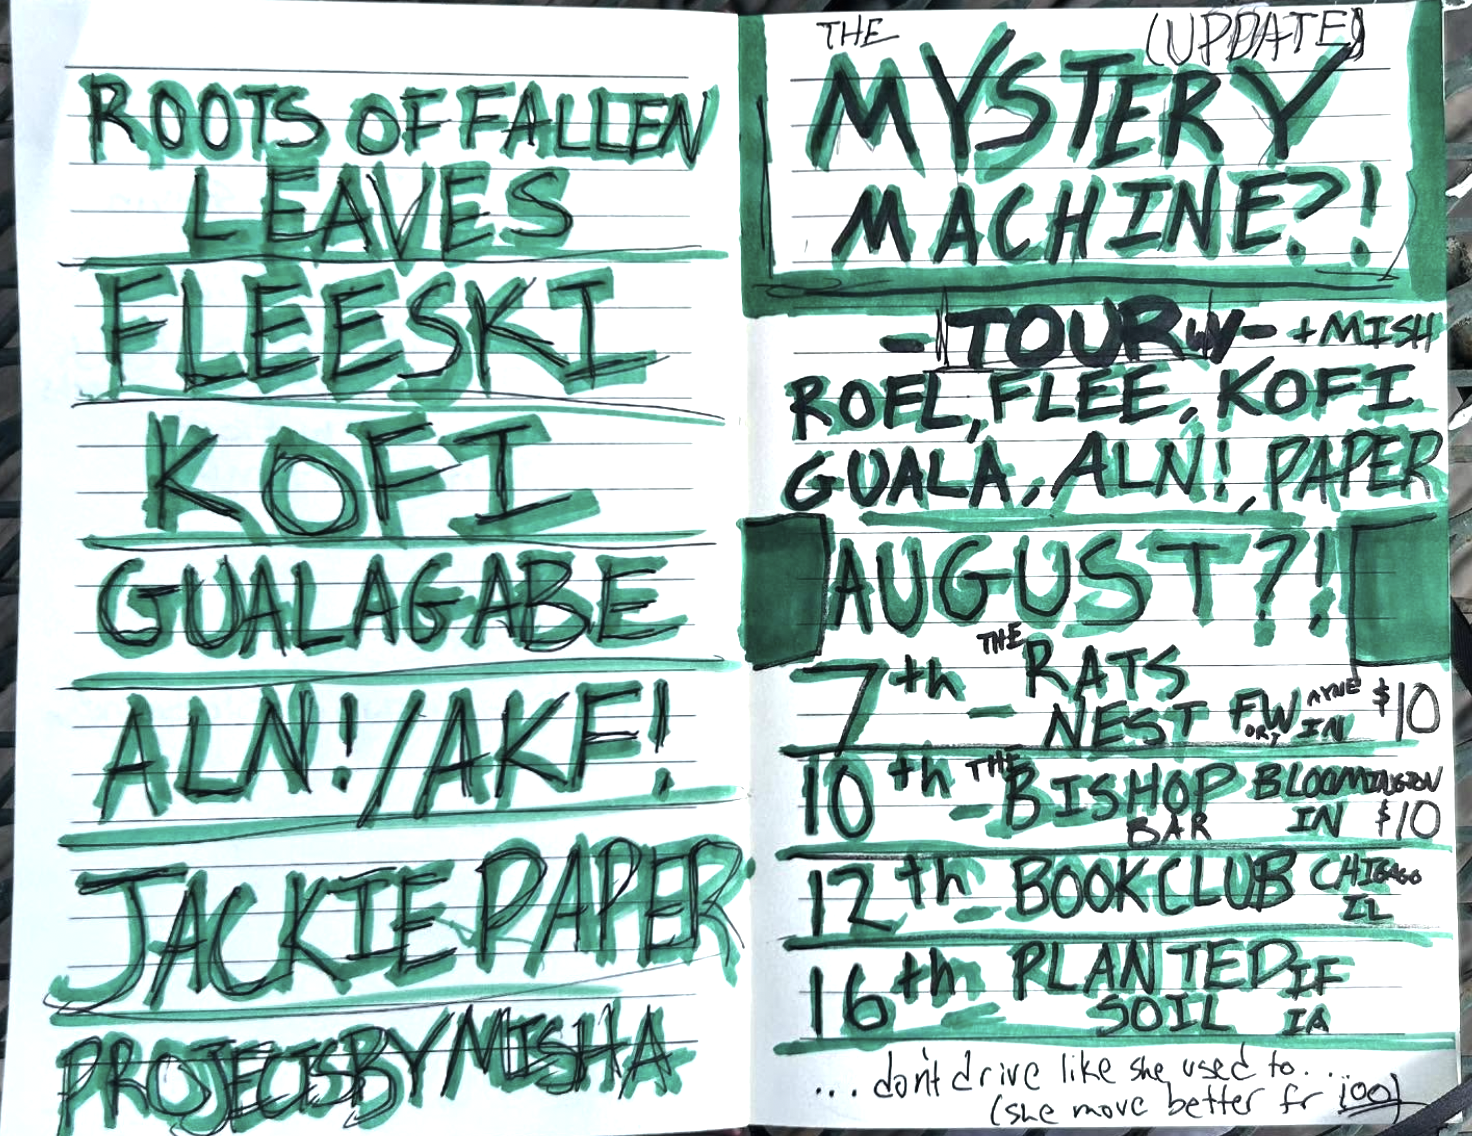 ROOTS OF FALLEN
LEAVES
FLEESKI
KOFI
GUALAGABE
ALN!/AKF!
JACKIE PAPER
PROJECTSBYMISHA
THE (UPDATE)
MYSTERY
MACHINE?!
- TOUR - + MISH
ROFL, FLEE, KOFI
GUALA, ALN!, PAPER
AUGUST?!
7th - THE RATS
NEST FORT WAYNE IN $10
10th - THE BISHOP BLOOMINGTON
BAR IN $10
12th - BOOKCLUB CHICAGO
IL
16th - PLANTED IF
SOIL IA
... don't drive like she used to...
(she move better fr ioo)